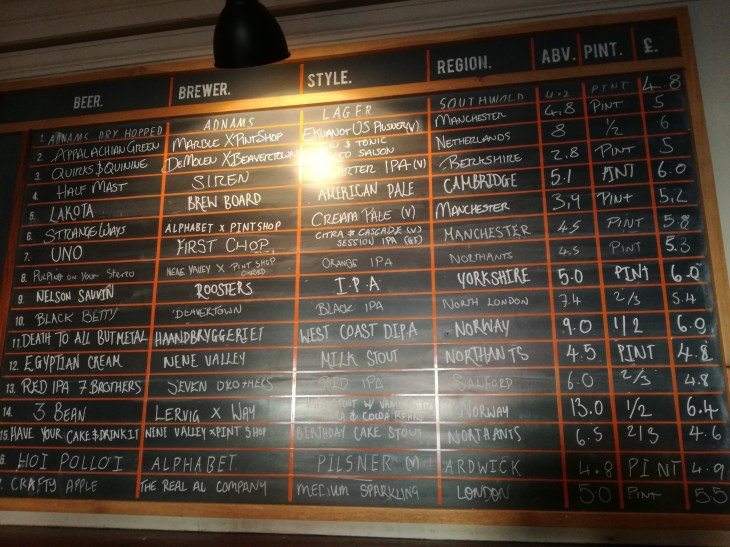 BEER. BREWER. STYLE. REGION. ABV. PINT. £.
1. ADNAMS DRY HOPPED ADNAMS LAGER SOUTHWOLD 4.2 PINT 4.8
2. APPALACHIAN GREEN MARBLE X PINTSHOP EKUANOT US PILSNER (V) MANCHESTER 4.8 PINT 5
3. QUIRKS & QUININE DEMOLEN X BEAVERTOWN & TONIC SAISON NETHERLANDS 8 1/2 6
4. HALF MAST SIREN QUARTER IPA (V) BERKSHIRE 2.8 PINT 5
5. LAKOTA BREW BOARD AMERICAN PALE CAMBRIDGE 5.1 PINT 6.0
6. STRANGE WAYS ALPHABET X PINTSHOP CREAM PALE (V) MANCHESTER 3,9 PINT 5.2
7. UNO FIRST CHOP CITRA & CASCADE (V)
SESSION IPA (GF) MANCHESTER 4.5 PINT 5.8
8. on your Stereo NENE VALLEY X PINT SHOP
ORANGE IPA NORTHANTS 4.5 PINT 5.3
9. NELSON SAUVIN ROOSTERS I.P.A YORKSHIRE 5.0 PINT 6.0
10. BLACK BETTY BEAVERTOWN BLACK IPA NORTH LONDON 7.4 2/3 5.4
11. DEATH TO ALL BUT METAL HAANDBRYGGERIET WEST COAST D.I.P.A NORWAY 9.0 1/2 6.0
12. EGYPTIAN CREAM NENE VALLEY MILK STOUT NORTHANTS 4.5 PINT 4.8
13. RED IPA 7 BROTHERS SEVEN BROTHERS RED IPA SALFORD 6.0 2/3 4.8
14. 3 BEAN LERVIG X WAY W/
& COCOA BEANS NORWAY 13.0 1/2 6.4
15. HAVE YOUR CAKE & DRINK IT NENE VALLEY X PINT SHOP BIRTHDAY CAKE STOUT NORTHANTS 6.5 2/3 4.6
HOI POLLO'I ALPHABET. PILSNER (V) ARDWICK 4.8 PINT 4.9
CRAFTY APPLE THE REAL AL COMPANY MEDIUM SPARKLING LONDON 50 PINT 5.5